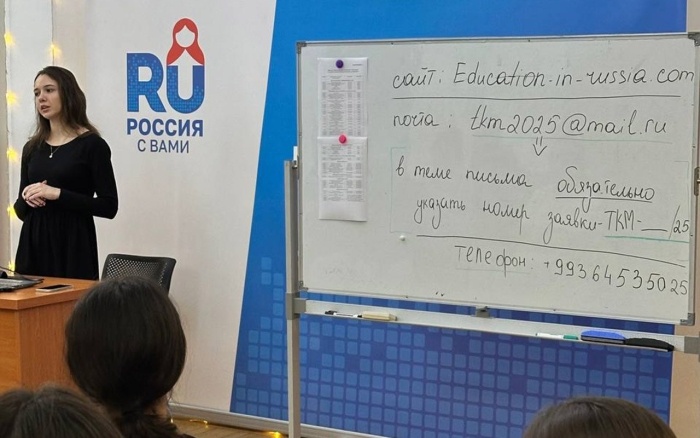 RU
РОССИЯ
С ВАМИ
сайт: Education-in-russia.com
почта: tkm2025@mail.ru
⇓
в теме письма обязательно
указать номер заявки-ТКМ-__/25
телефон: +99364535025